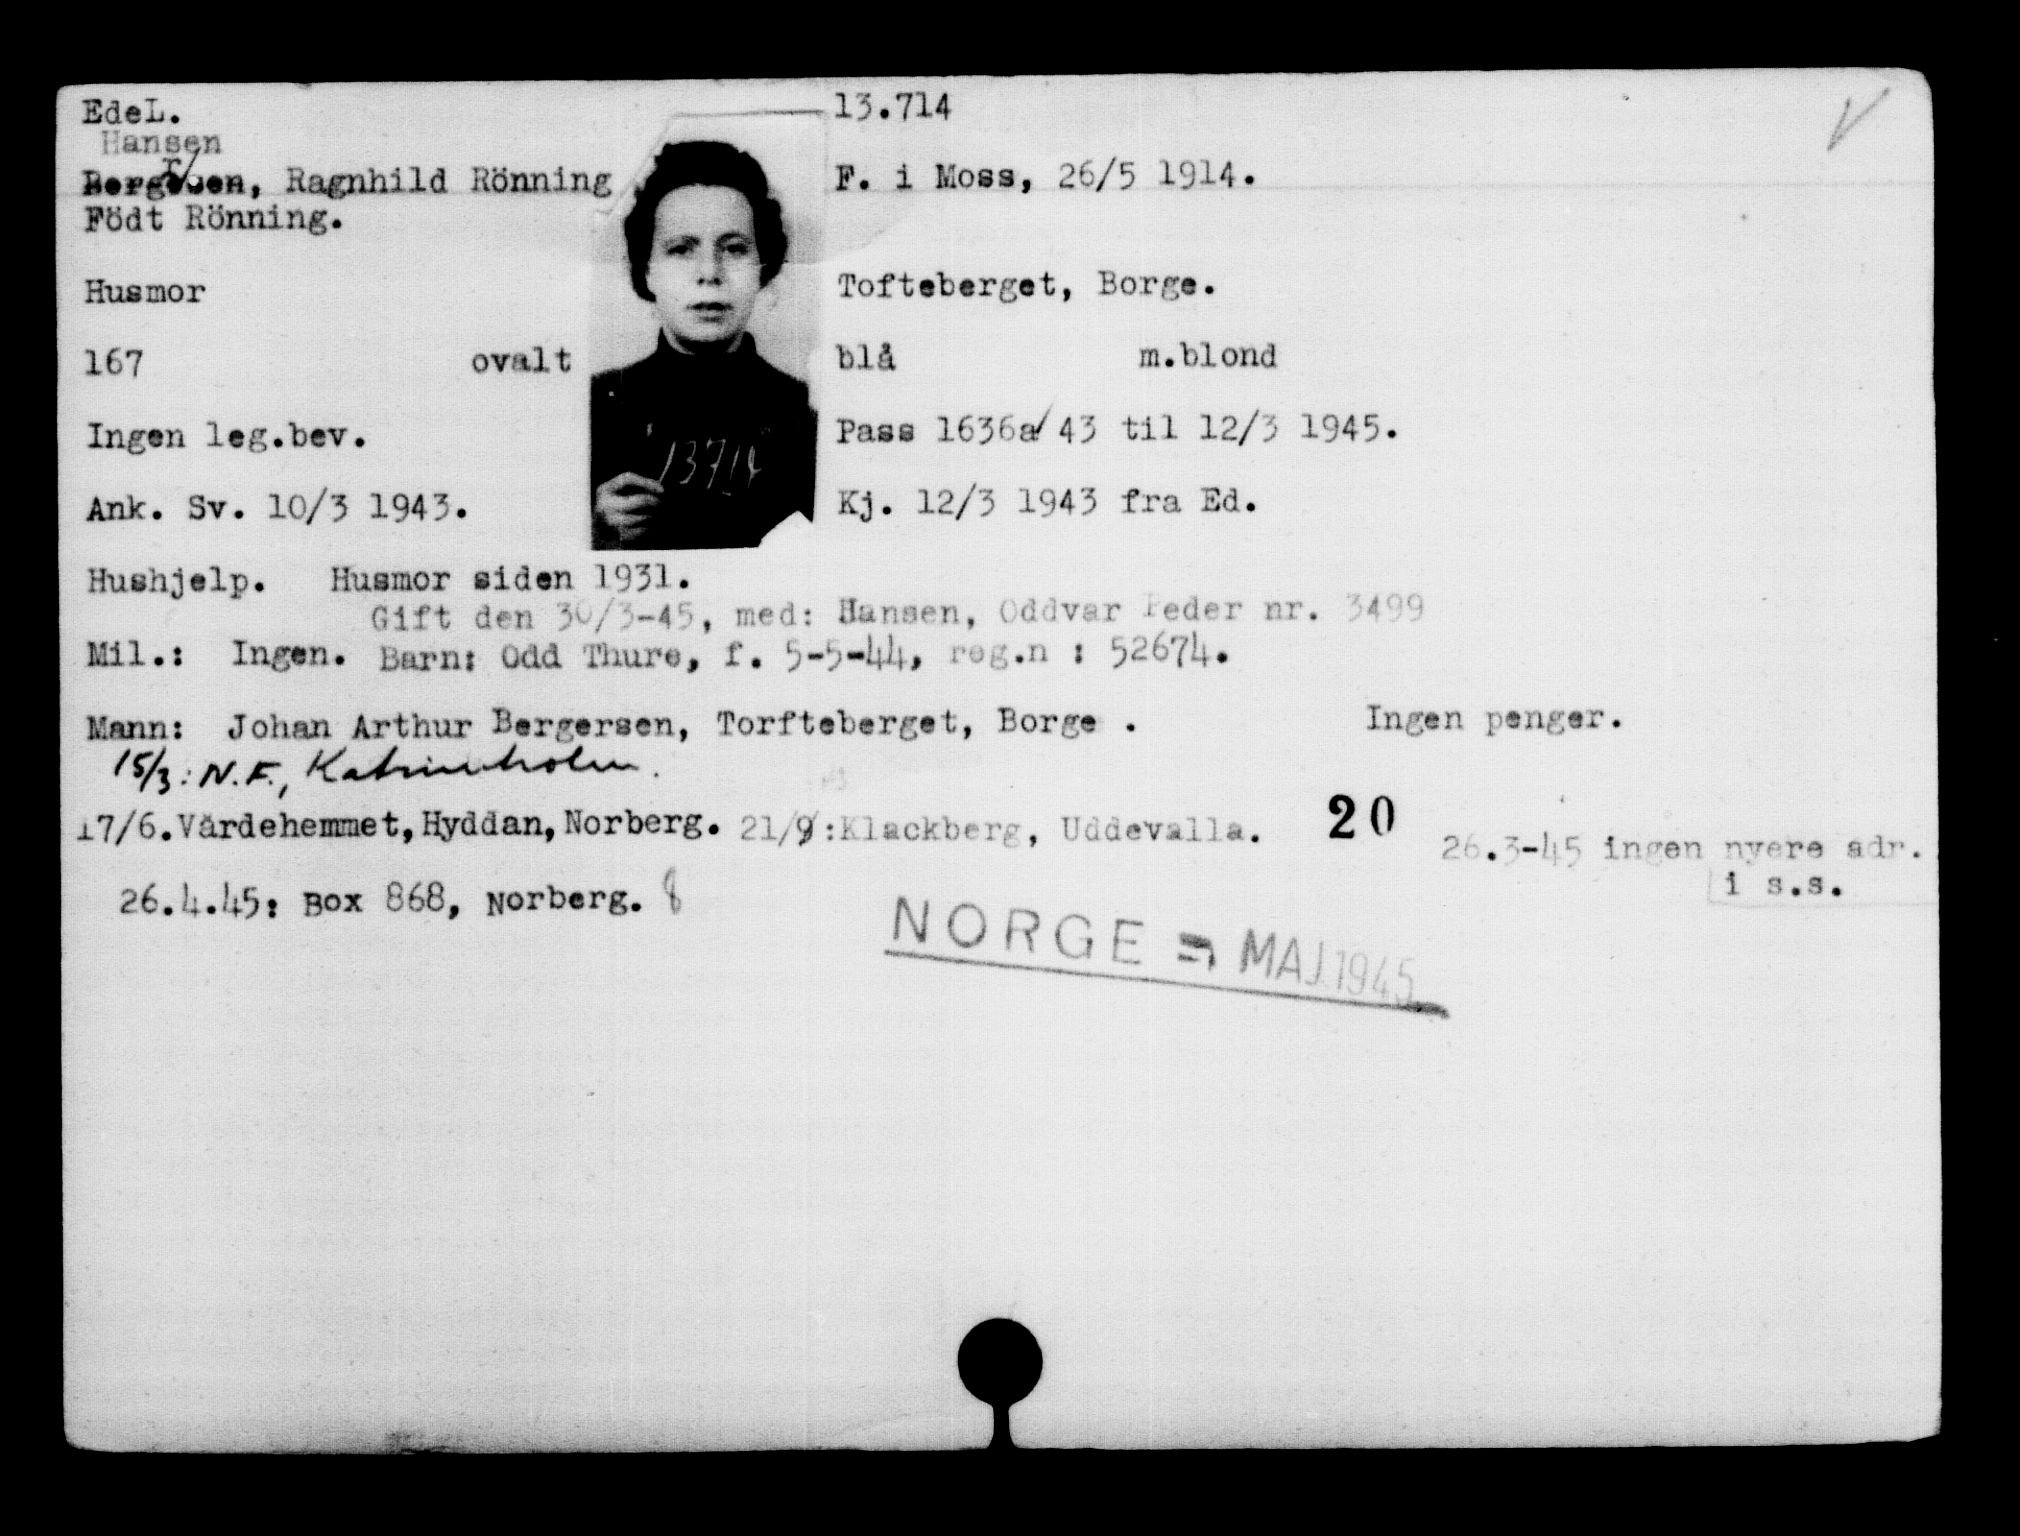 EdeL. 13.714
Hansen
Bergersen, Ragnhild Rönning F. i Moss, 26/5 1914.
Födt Rönning.
Husmor Tofteberget, Borge.
167 ovalt blå m.blond
Ingen leg.bev. Pass 1636a/43 til 12/3 1945.
13714
Ank. Sv. 10/3 1943. Kj. 12/3 1943 fra Ed.
Hushjelp. Husmor siden 1931.
Gift den 30/3-45, med: Hansen, Oddvar Peder nr. 3499
Mil.: Ingen. Barn: Odd Thure, f. 5-5-44, reg.n : 52674.
Mann: Johan Arthur Bergersen, Torfteberget, Borge . Ingen penger.
15/3: N.F., Katrineholm.
17/6.Värdehemmet,Hyddan,Norberg. 21/9:Klackberg, Uddevalla. 20
26.3-45 ingen nyere adr.
i s.s.
26.4.45: Box 868, Norberg. 8
NORGE = MAJ.1945